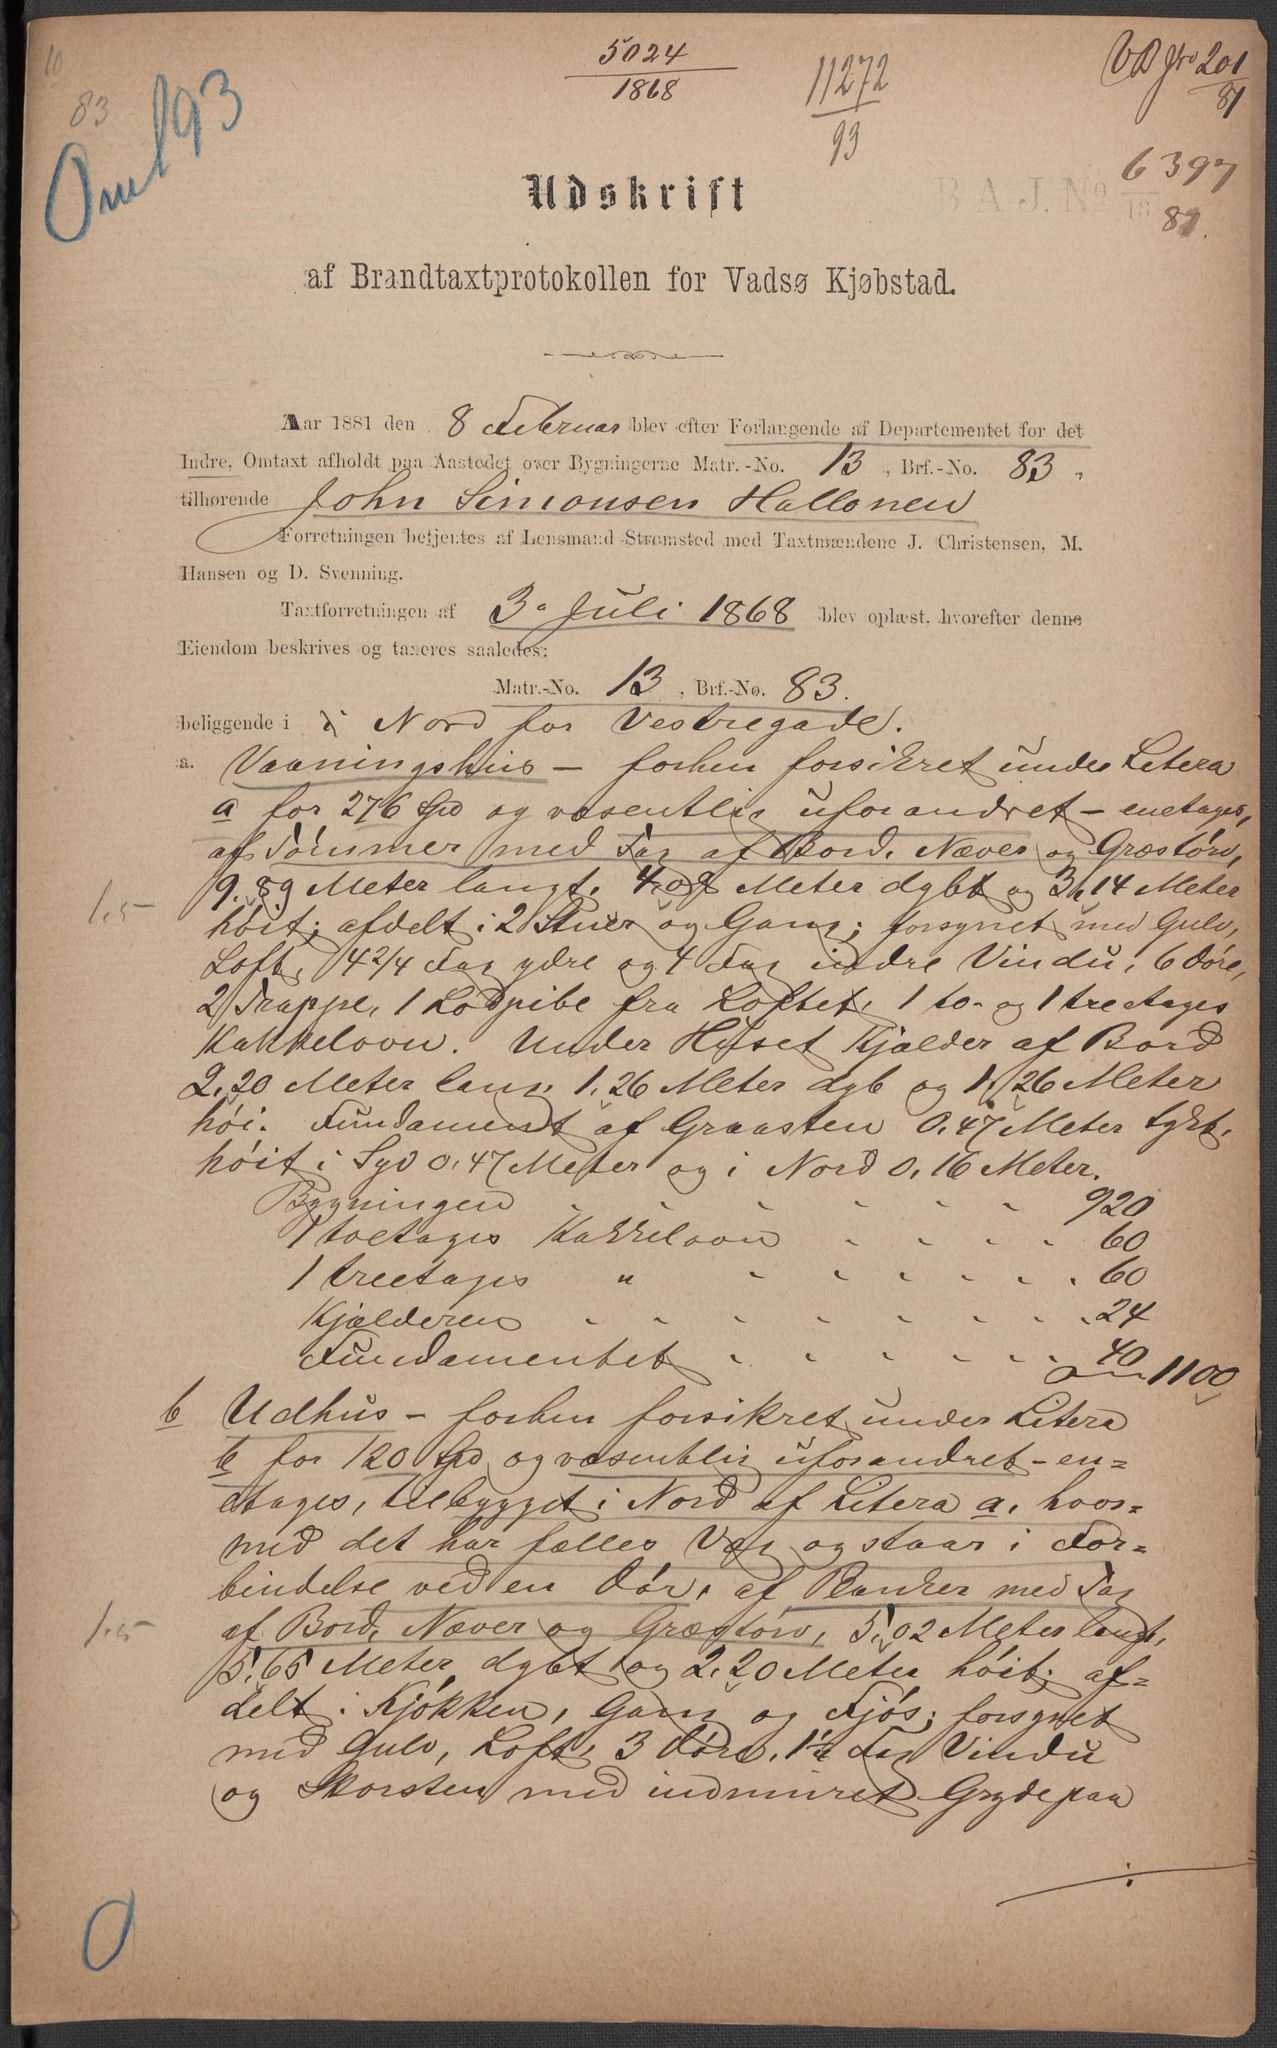 10
83
Omt 93
5024
1868
11272
93
VD Jno 201
81
6397
81.
B A J. No
18
Udskrift
af Brandtaxtprotokollen for Vadsø Kjøbstad.
Aar 1881 den 8 Februar blev efter Forlangende af Departementet for det
Indre, Omtaxt afholdt paa Aastedet over Bygningerne Matr.-No. 13, Brf.-No. 83,
tilhørende John Simonsen Hallonen
Forretningen betjentes af Lensmand Strømsted med Taxtmændene J. Christensen, M.
Hansen og D. Svenning.
Taxtforretningen af 3. Juli 1868 blev oplæst, hvorefter denne
Eiendom beskrives og taxeres saaledes:
Matr.-No. 13, Brf.-No. 83.
beliggende i Nord for Vestregade.
a. Vaaningshus – forhen forsikret under Litera
a for 276 Spd og væsentlig uforandret – enetages,
af Tømmer med Tag af Bord, Næver og Græstørv,
9.89 Meter langt, Meter dybt og 3,14 Meter
høit; afdelt i 2 Stuer og Gang; forsynet med Gulv,
Loft, 4 2/4 Fag ydre og 4 Fag indre Vindu, 6 Døre,
2 Trappe, 1 Lodpibe fra Loftet, 1 to- og 1 treetages
Kakkelovn. Under Huset Kjælder af Bord
2,20 Meter lang, 1,26 Meter dyb og 1,26 Meter
høi. Fundament af Graasten 0,47 Meter tykt,
høit i Syd 0,47 Meter og i Nord 0,16 Meter.
Bygningen 920
1 toetages Kakkelovn 60
1 treetages " 60
Kjælderen 24
Fundamentet 40
1100
b Udhus – forhen forsikret under Litera
b for 120 Spd og væsentlig uforandret – en=
etages, tilbygget i Nord af Litera a, hvor=
med det har fælles Væg og staar i For=
bindelse ved en Dør, af Planker med Tag
af Bord, Næver og Græstørv, 5,02 Meter langt,
5,65 Meter dybt og 2,20 Meter høit; af=
delt i Kjøkken, Gang og Fjøs; forsynet
med Gulv, Loft, 3 Døre, 1 1/2 Fag Vindu
og Skorsten med indmuret Gryde paa